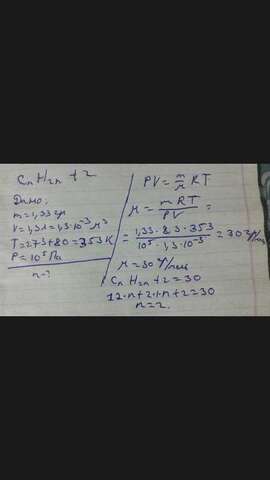 CnH2n+2
Дано:
m=1,33гр
V=1,3л=1,3·10⁻³ м³
T=273+80=353К
P=10⁵Па
n-?
PV=m/μ RT
μ=mRT/PV=
=1,33·8,3·353/10⁵·1,3·10⁻³=30 г/моль
μ=30 г/моль
CnH2n+2=30
12·n+2·1·n+2=30
n=2.